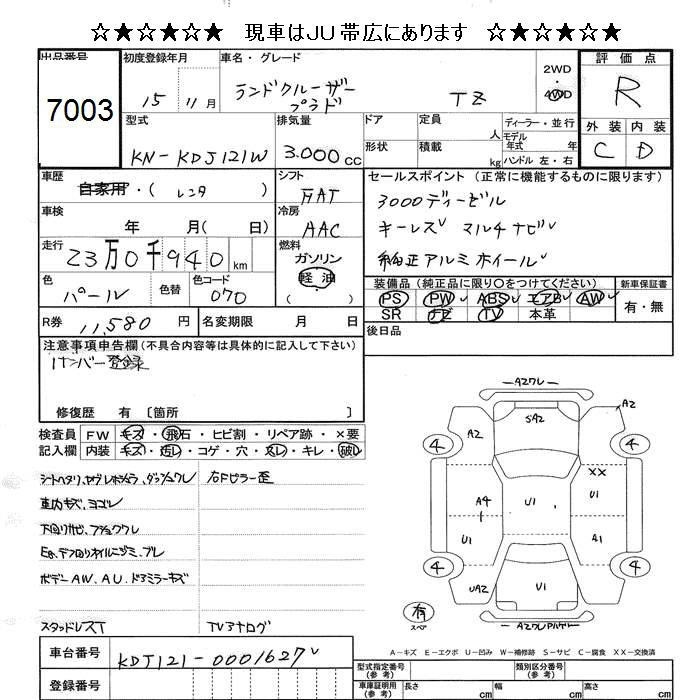 ☆★☆★☆★ 現車はJU帯広にあります ☆★☆★☆★
出品番号 初度登録年月 車名・グレード 評価点
7003 15 11月 ランドクルーザープラド TZ 2WD・4WD R
型式 排気量 ドア 定員 人 ディーラー・並行 外装 内装
KN-KDJ121W 3.000cc 形状 積載 kg モデル年式 年 ハンドル 左・右 C D
車歴 自家用・(レンタ) シフト FAT セールスポイント(正常に機能するものに限ります)
車検 年 月(日) 冷房 AAC 3000ディーゼル
キーレス マルチナビ
走行 23万0千940km 燃料 ガソリン 軽油 ( ) 純正アルミホイール
色 パール 色替 色コード 070 装備品(純正品に限り○をつけてください) 新車保証書
PS PW ABS エアB AW 有・無
SR ナビ TV 本革
R券 11,580円 名変期限 月 日 後日品
注意事項申告欄(不具合内容等は具体的に記入して下さい)
1ナンバー登録
修復歴 有〔箇所 〕
検査員 FW キズ・飛石・ヒビ割・リペア跡・×要
記入欄 内装 キズ・汚レ・コゲ・穴・スレ・キレ・破レ
右Fピラー歪
車内キズ、ヨゴレ
ボデーAW、AU、ドアミラーキズ
スタッドレスT TVアナログ
AZワレ
SA2
A2 A2
4 4
XX
A4 U1 U1
U1 A1
4 4
UA2 U1
有
スペア
A-キズ E-エクボ U-凹み W-補修跡 S-サビ C-腐食 XX-交換済
車台番号 KDJ121-0001627
型式指定番号(参考) 類別区分番号(参考)
登録番号 車庫証明用(参考) 長さ cm 幅 cm 高さ cm